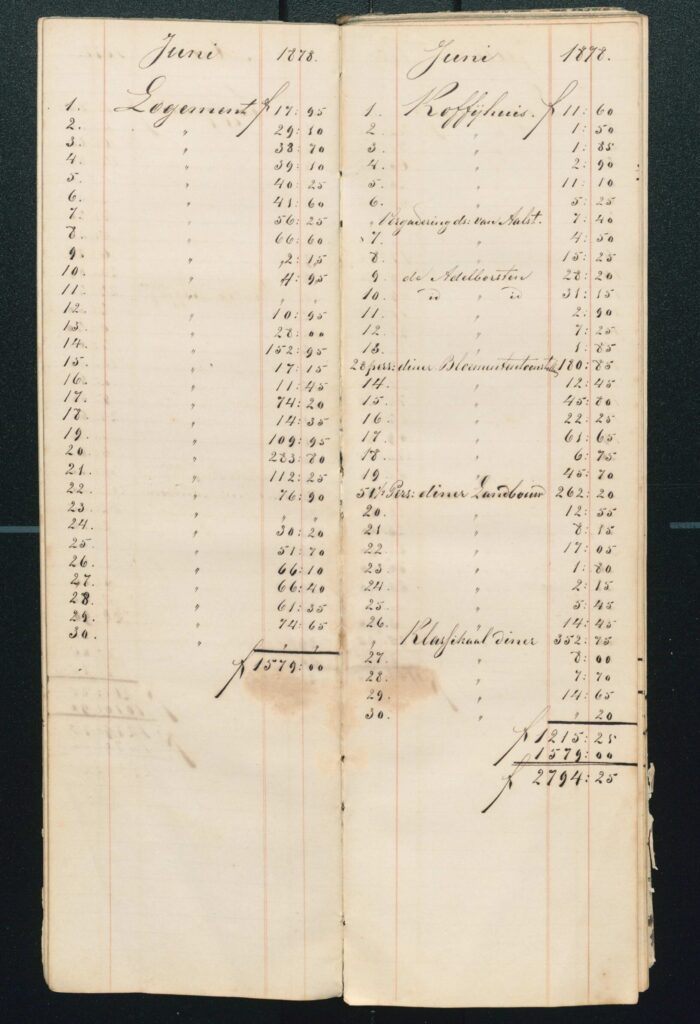 Juni 1878.
1. Logement f 17:95
2. " 29:10
3. " 38:70
4. " 39:10
5. " 40:25
6. " 41:60
7. " 56:25
8. " 66:60
9. " 2:15
10. " 4:95
11. " " "
12. " 10:95
13. " 28:00
14. " 152:95
15. " 17:15
16. " 11:45
17. " 74:20
18. " 14:35
19. " 109:95
20. " 283:80
21. " 112:25
22. " 76:90
23. " " "
24. " 30:20
25. " 51:70
26. " 66:10
27. " 66:40
28. " 61:35
29. " 74:65
30. " " "
f 1579:00
Juni 1878.
1. Koffijhuis. f 11:60
2 " 1:50
3. " 1:85
4. " 2:90
5. " 11:10
6. " 5:25
" Vergadering ds: van Aalst. 7:40
7. " 4:50
8. " 15:25
9. de Adelborsten 28:20
10. id " id 31:15
11. " 2:90
12. " 7:25
13. " 1:85
28 pers: diner Bloemententoonst 180:85
14. " 12:45
15. " 45:80
16. " 22:25
17. " 61:65
18. " 6:75
19. " 45:70
51 Pers: diner Landbouw 262:20
20. " 12:55
21. " 8:15
22. " 17:05
23. " 1:80
24. " 2:15
25. " 5:45
26. " 14:45
" Klassikaal diner 352:75
27. " 8:00
28. " 7:70
29. " 14:65
30. " " 20
f 1215:25
1579:00
f 2794:25